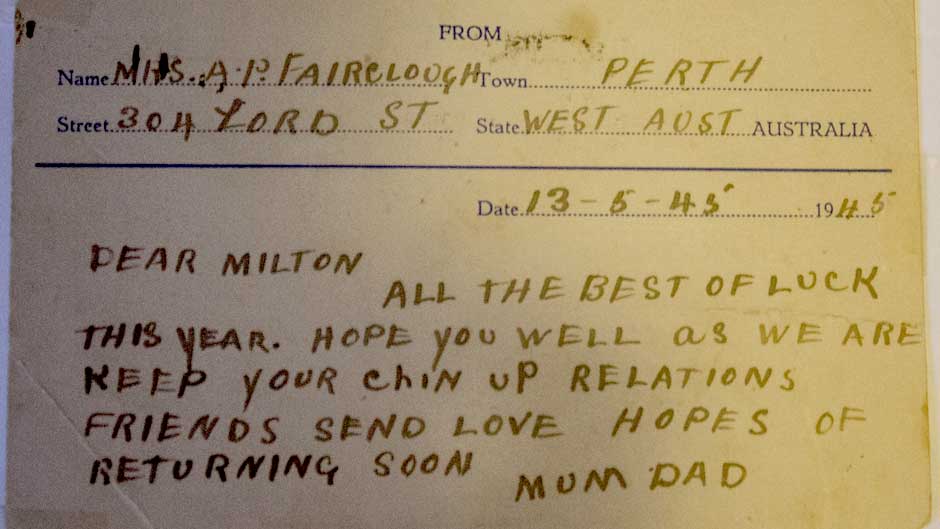 FROM
Name MRS. A. P. FAIRCLOUGH Town PERTH
Street 304 LORD ST State WEST AUST AUSTRALIA
Date 13-5-45 1945
DEAR MILTON
ALL THE BEST OF LUCK
THIS YEAR. HOPE YOU WELL AS WE ARE
KEEP YOUR ChIN UP RELATIONS
FRIENDS SEND LOVE HOPES OF
RETURNING SOON
MUM DAD